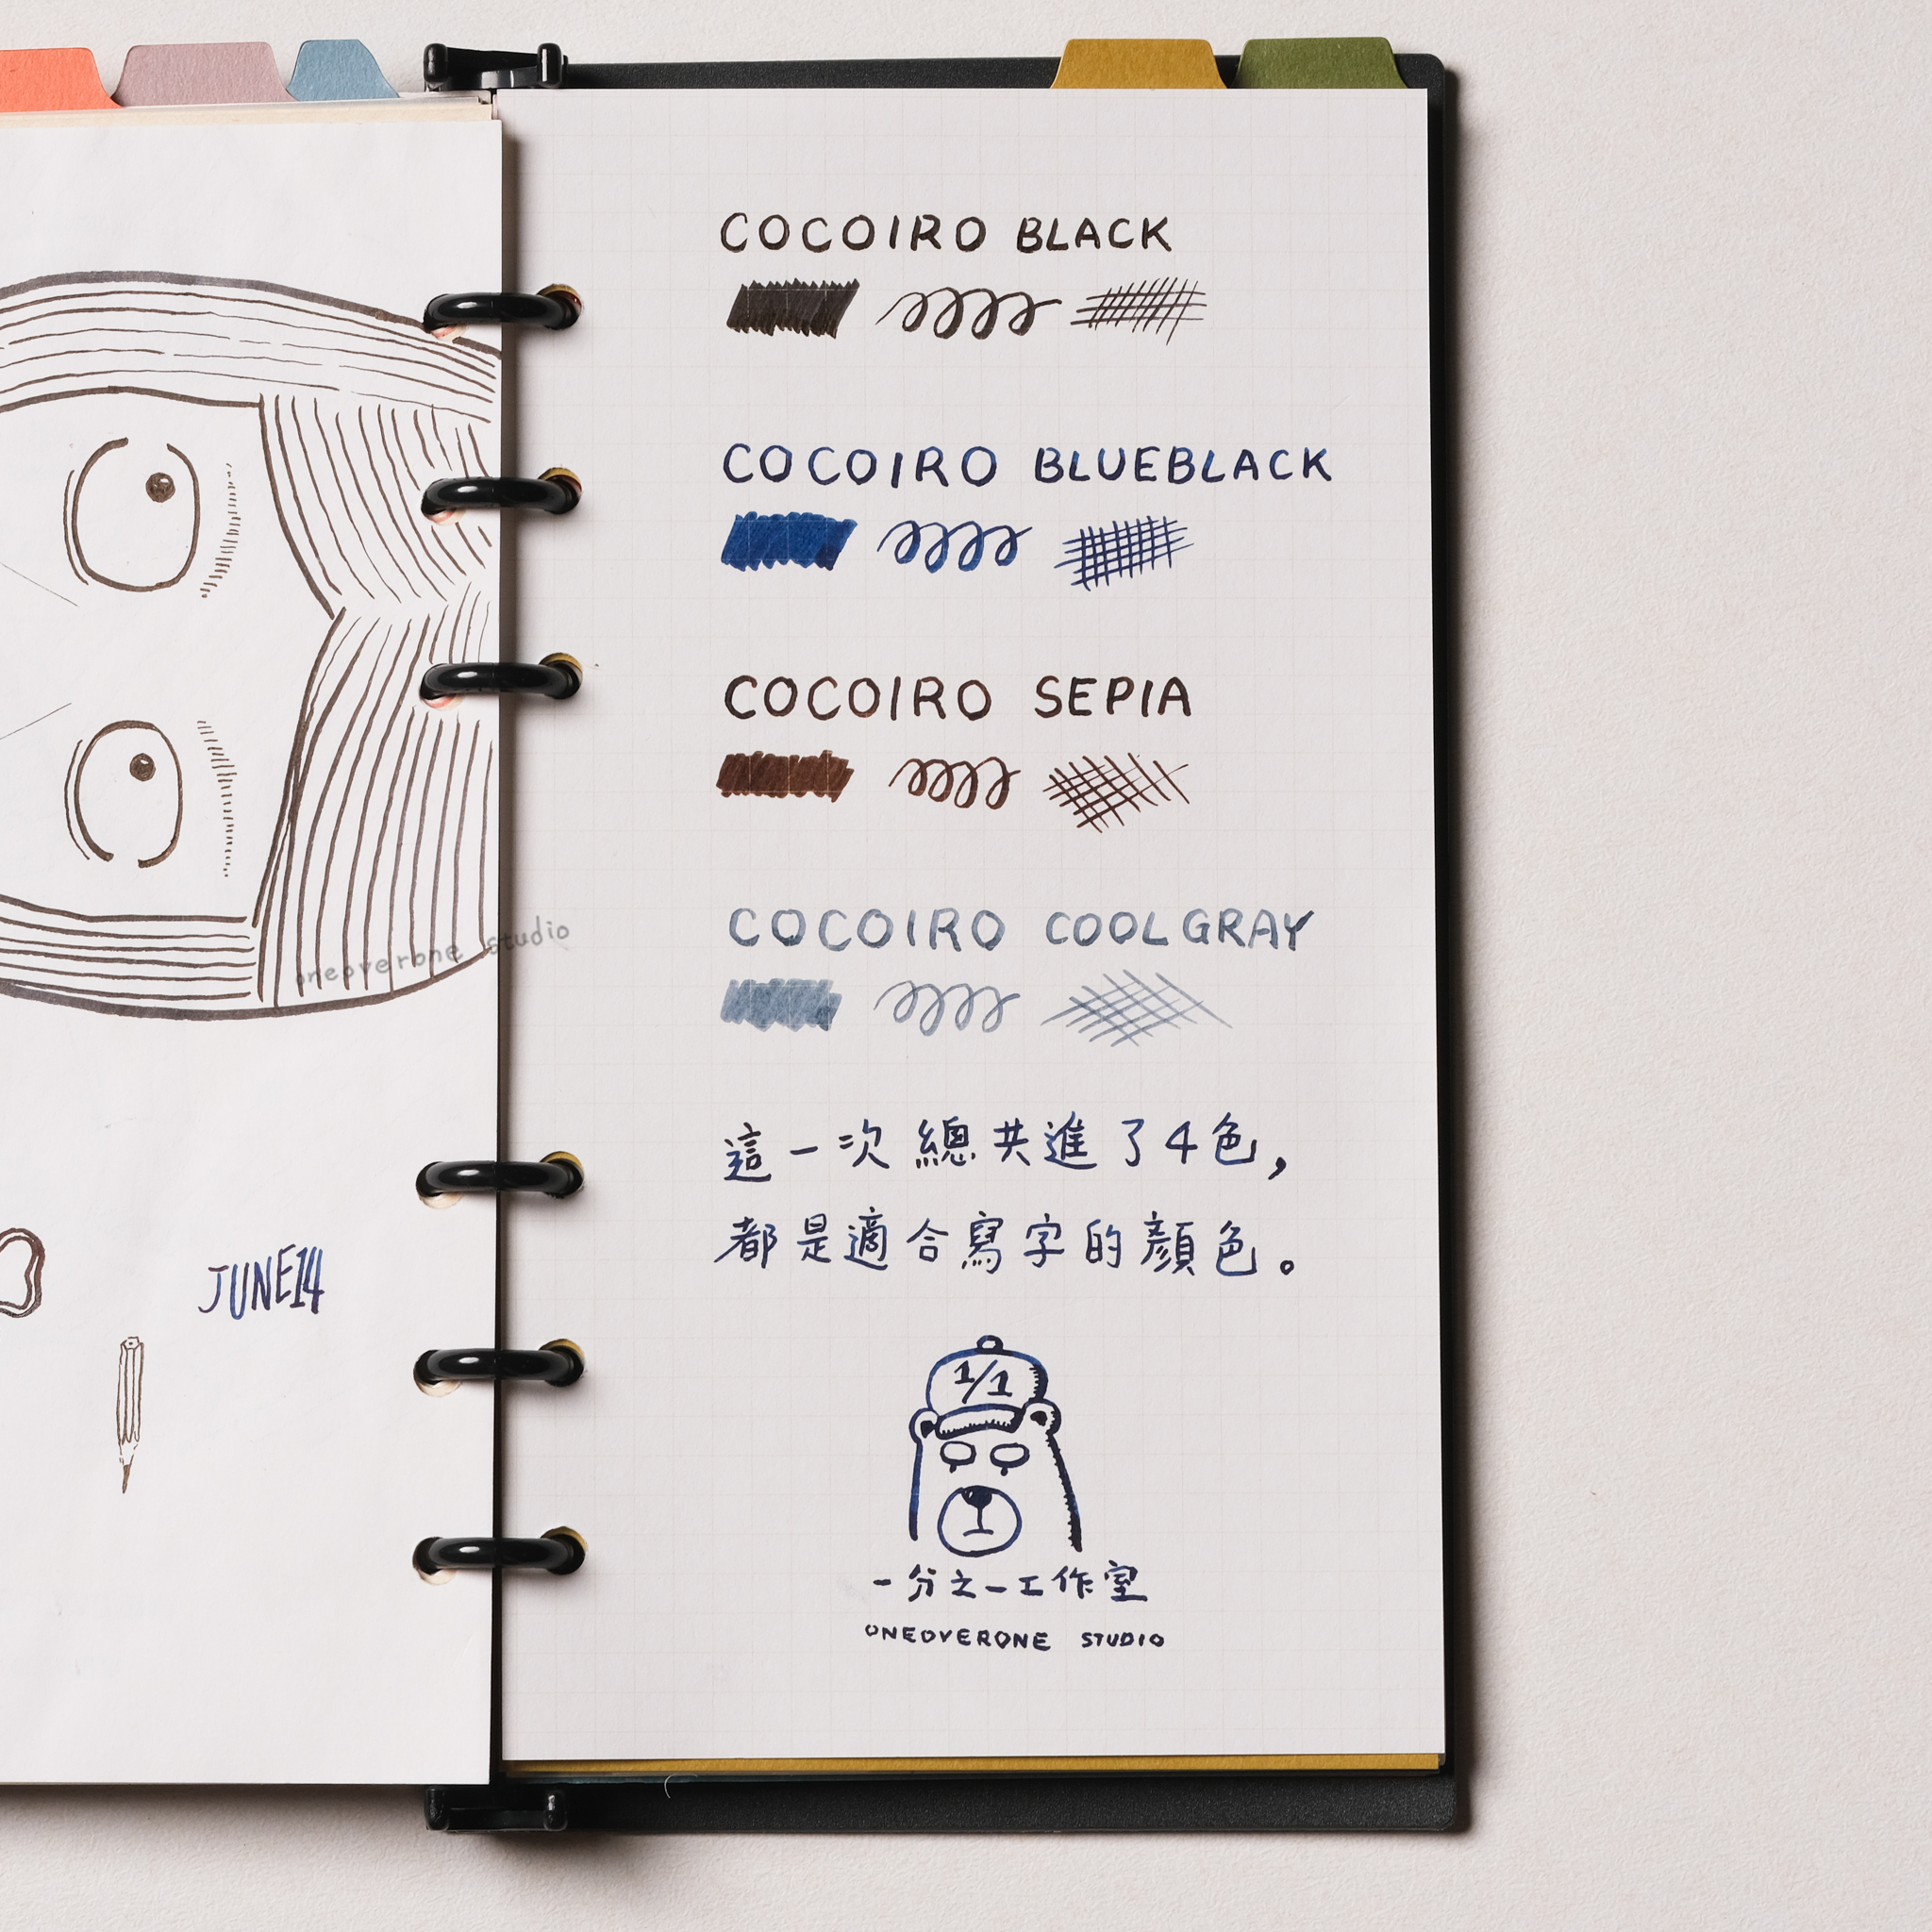 COCOIRO BLACK
COCOIRO BLUEBLACK
COCOIRO SEPIA
COCOIRO COOL GRAY
這一次總共進了4色,
都是適合寫字的顏色。
1/1
一分之一工作室
ONEOVERONE STUDIO
oneoverone studio
JUNE14